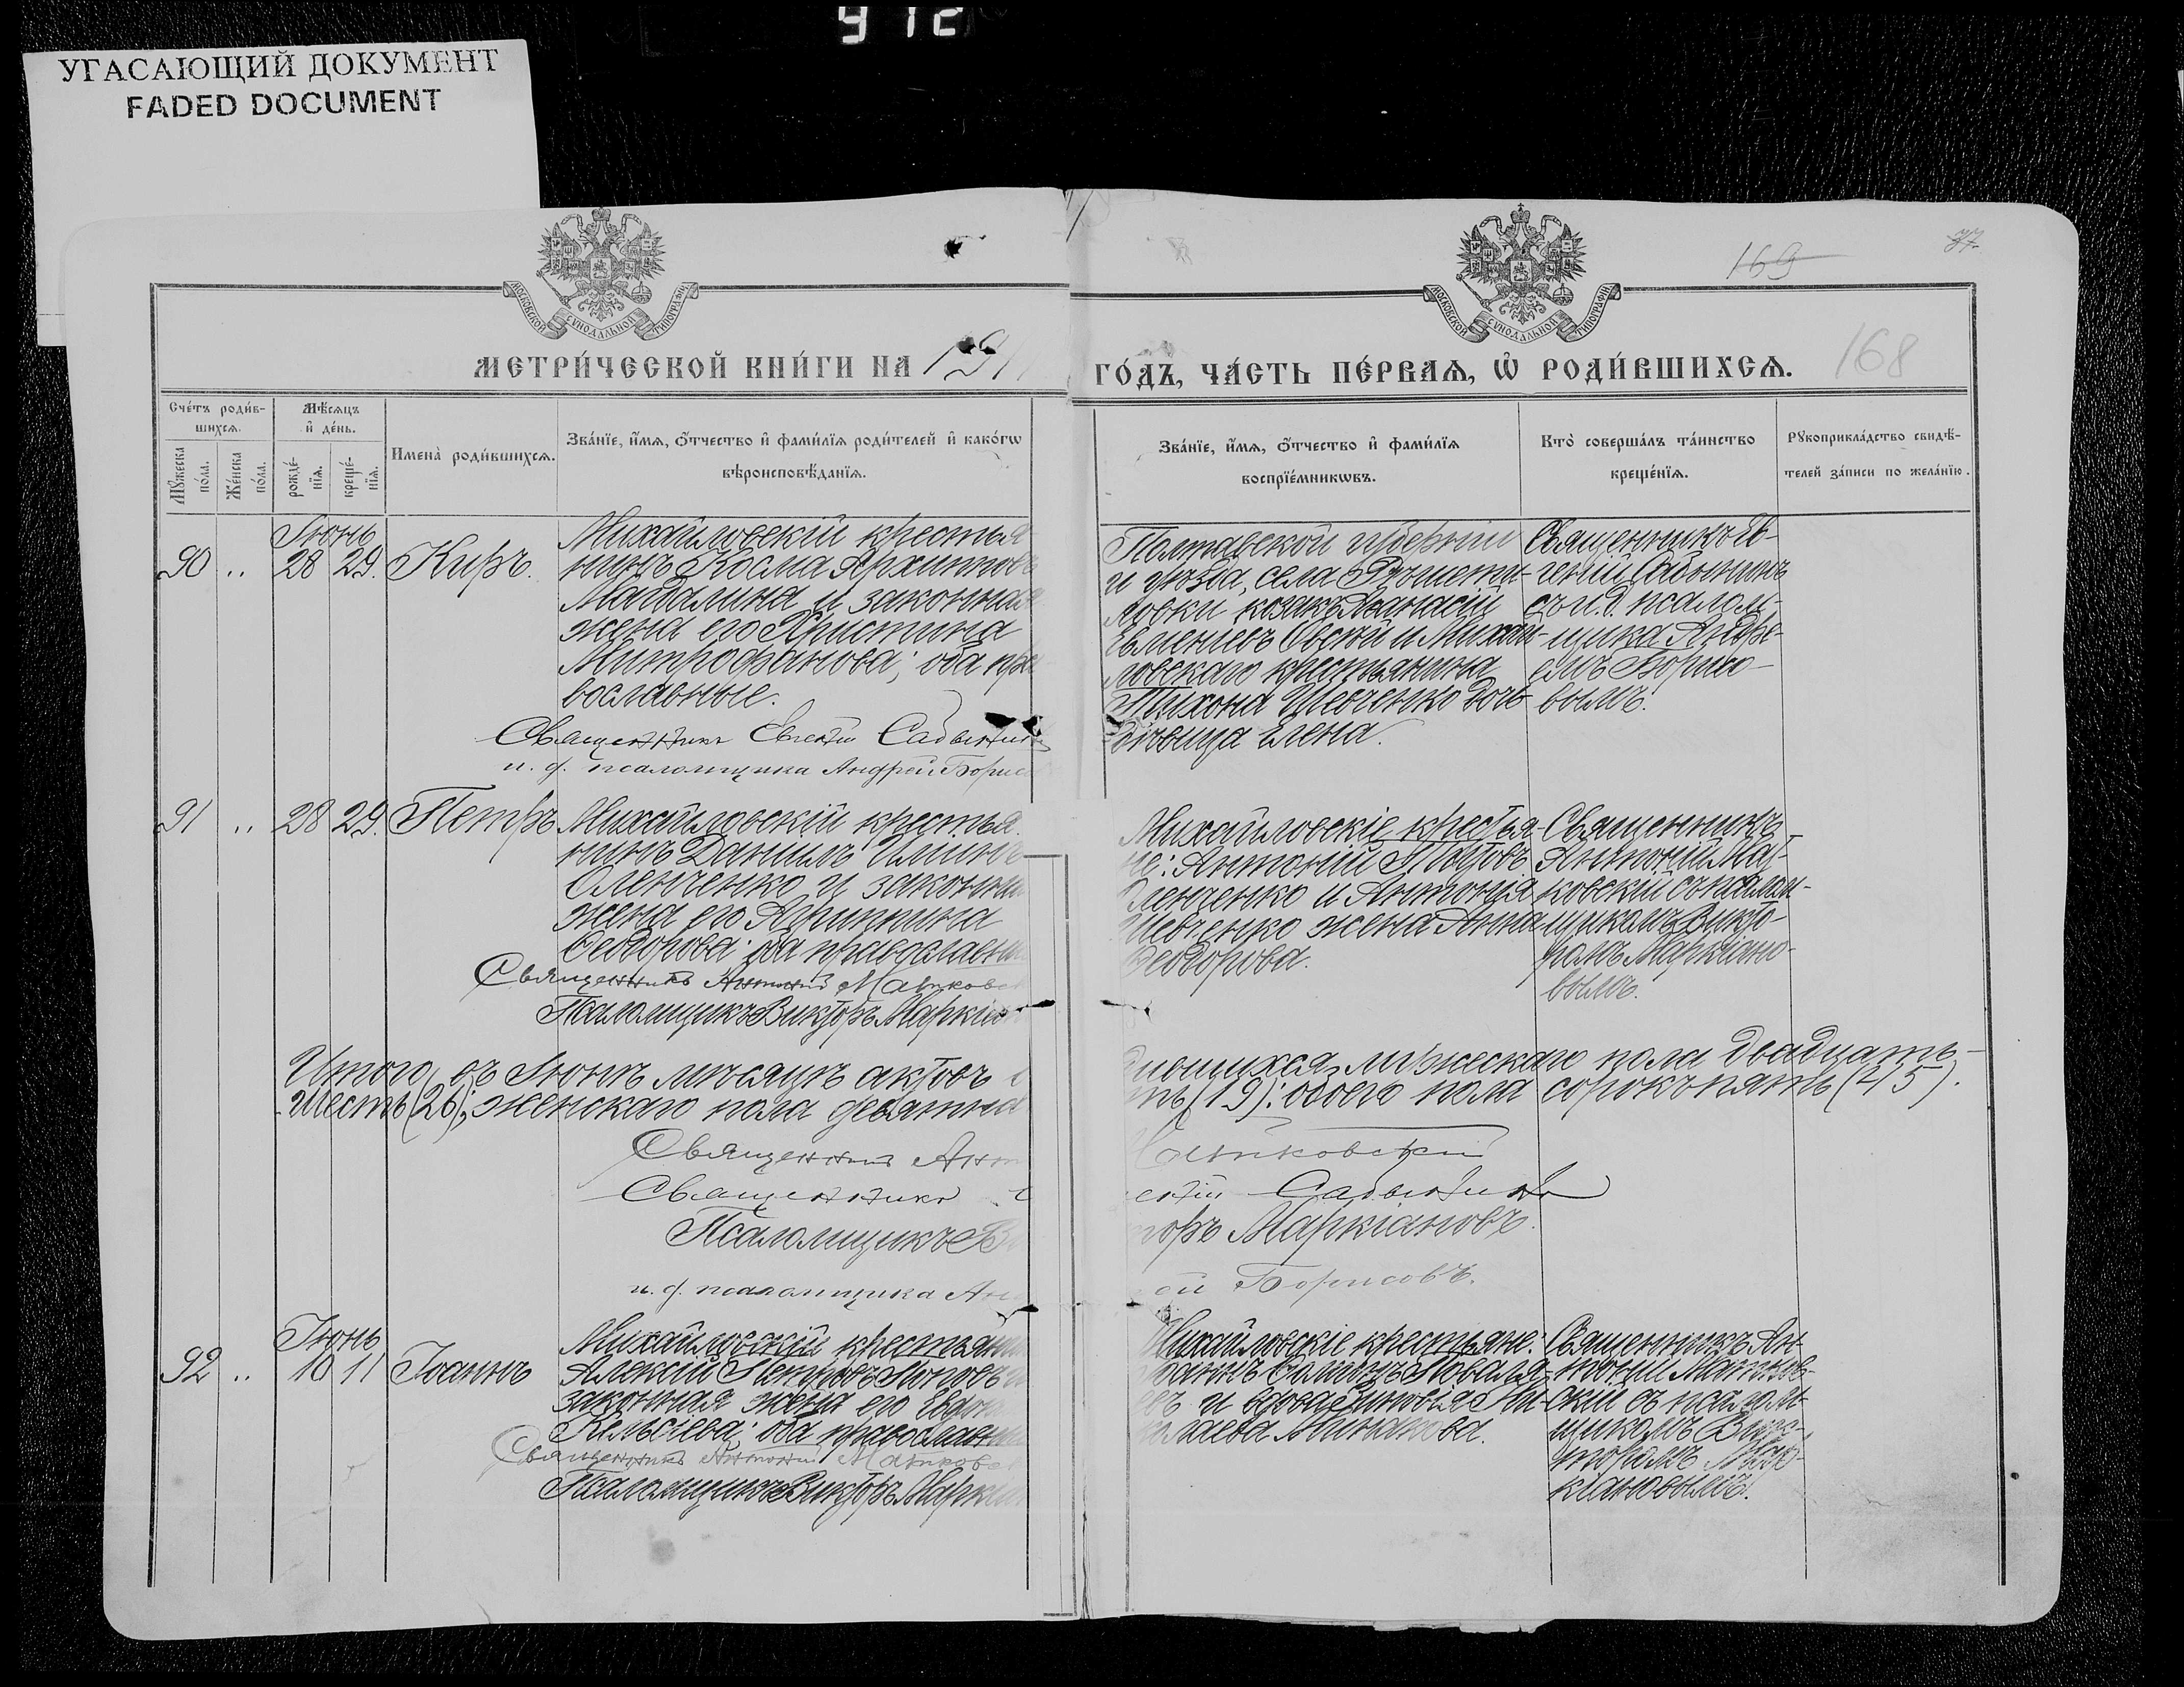 912
УГАСАЮЩИЙ ДОКУМЕНТ
FADED DOCUMENT
МОСКОВСКОЙ СѴНОДАЛЬНОЙ ТИПОГРАФІИ
МОСКОВСКОЙ СѴНОДАЛЬНОЙ ТИПОГРАФІИ
169
37
168
МЕТРИ́ЧЕСКОЙ КНИ́ГИ НА 191
ГО́ДЪ, ЧА́СТЬ ПЕ́РВАѦ, Ѡ҆ РОДИ́ВШИХСѦ.
Сче́тъ роди́в-
шихсѧ.
Мѣ́сѧцъ
и҆ де́нь.
Мꙋ́жеска
по́ла.
Же́нска
по́ла.
рожде́-
нїѧ.
креще́-
нїѧ.
Имена̀ роди́вшихсѧ.
Зва́нїе, и҆́мѧ, ѻ҆́тчество и҆ фами́лїѧ роди́телей и҆ како́гѡ
вѣроисповѣ́данїѧ.
Зва́нїе, и҆́мѧ, ѻ҆́тчество и҆ фами́лїѧ
воспрїе́мникѡвъ.
Кто̀ соверша́лъ та́инство
креще́нїѧ.
Рꙋкоприкла́дство свидѣ́-
телей за́писи по жела́нїю.
Іюнь
90 „ 28 29. Киръ.
Михайловскій крестья
нинъ Косма Архиппов
и законная
жена его Христина
Митрофанова; оба пра
вославные.
Священникъ Евгеній
и. д. псаломщика Андрей Борисов
Полтавской губерніи
и уѣзда, села Рѣшети-
ловки козакъ Аѳанасій
и Михай-
ловскаго крестьянина
Тихона Шевченко дочь
дѣвица Елена.
Священникъ Ев-
геній
съ и. д. псалом-
щика Андре-
емъ Борисо-
вымъ.
91 „ 28 29. Петръ
Михайловскій крестья
нинъ Даніилъ Иліинъ
Оленченко и законная
жена его Агриппина
Ѳеодорова; оба православны
Священникъ Антоній Матковск
Псаломщикъ Викторъ Маркіан
Михайловскіе крестья-
не: Антоній
Оленченко и Антонія
Шевченко жена Анна
Ѳеодорова.
Священникъ
Антоній Мат-
ковскій съ псалом-
щикомъ Викто-
ромъ Маркіано-
вымъ.
Итого въ Іюнѣ мѣсяцѣ актовъ
дившихся мужескаго пола двадцать-
шесть (26); женскаго пола девятна
ть (19); обоего пола сорокъ пять (45).
Священникъ Ант
Матковскій
Священникъ
еній
Псаломщикъ В
торъ Маркіановъ.
и. д. псаломщика Ан
ей Борисовъ.
Іюнь
92 „ 10 11 Іоаннъ
Михайловскій крестьянин
Алексій Петровъ Поповъ
законная жена его Евдок
Кельсіева; оба православны
Священникъ Антоній Матковск
Псаломщикъ Викторъ Маркіан
Михайловскіе крестьяне:
Ковале
въ и вдова Ни-
колаева Минакова.
Священникъ Ан-
тоній Матков-
скій съ псалом-
щикомъ Вик-
торомъ Мар-
кіановымъ.